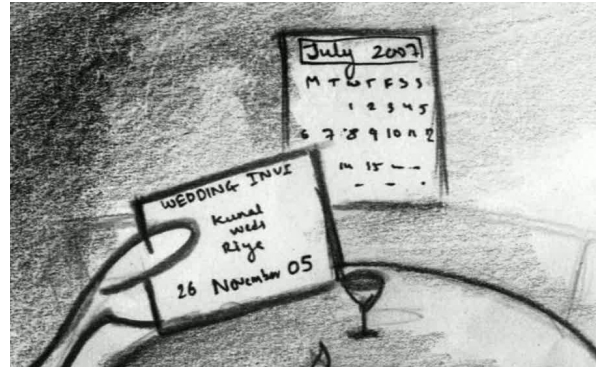 July 2007
M T W T F S S
1 2 3 4 5
6 7 8 9 10 11 12
14 15
WEDDING INVI
Kunal
Weds
Riye
26 November 05